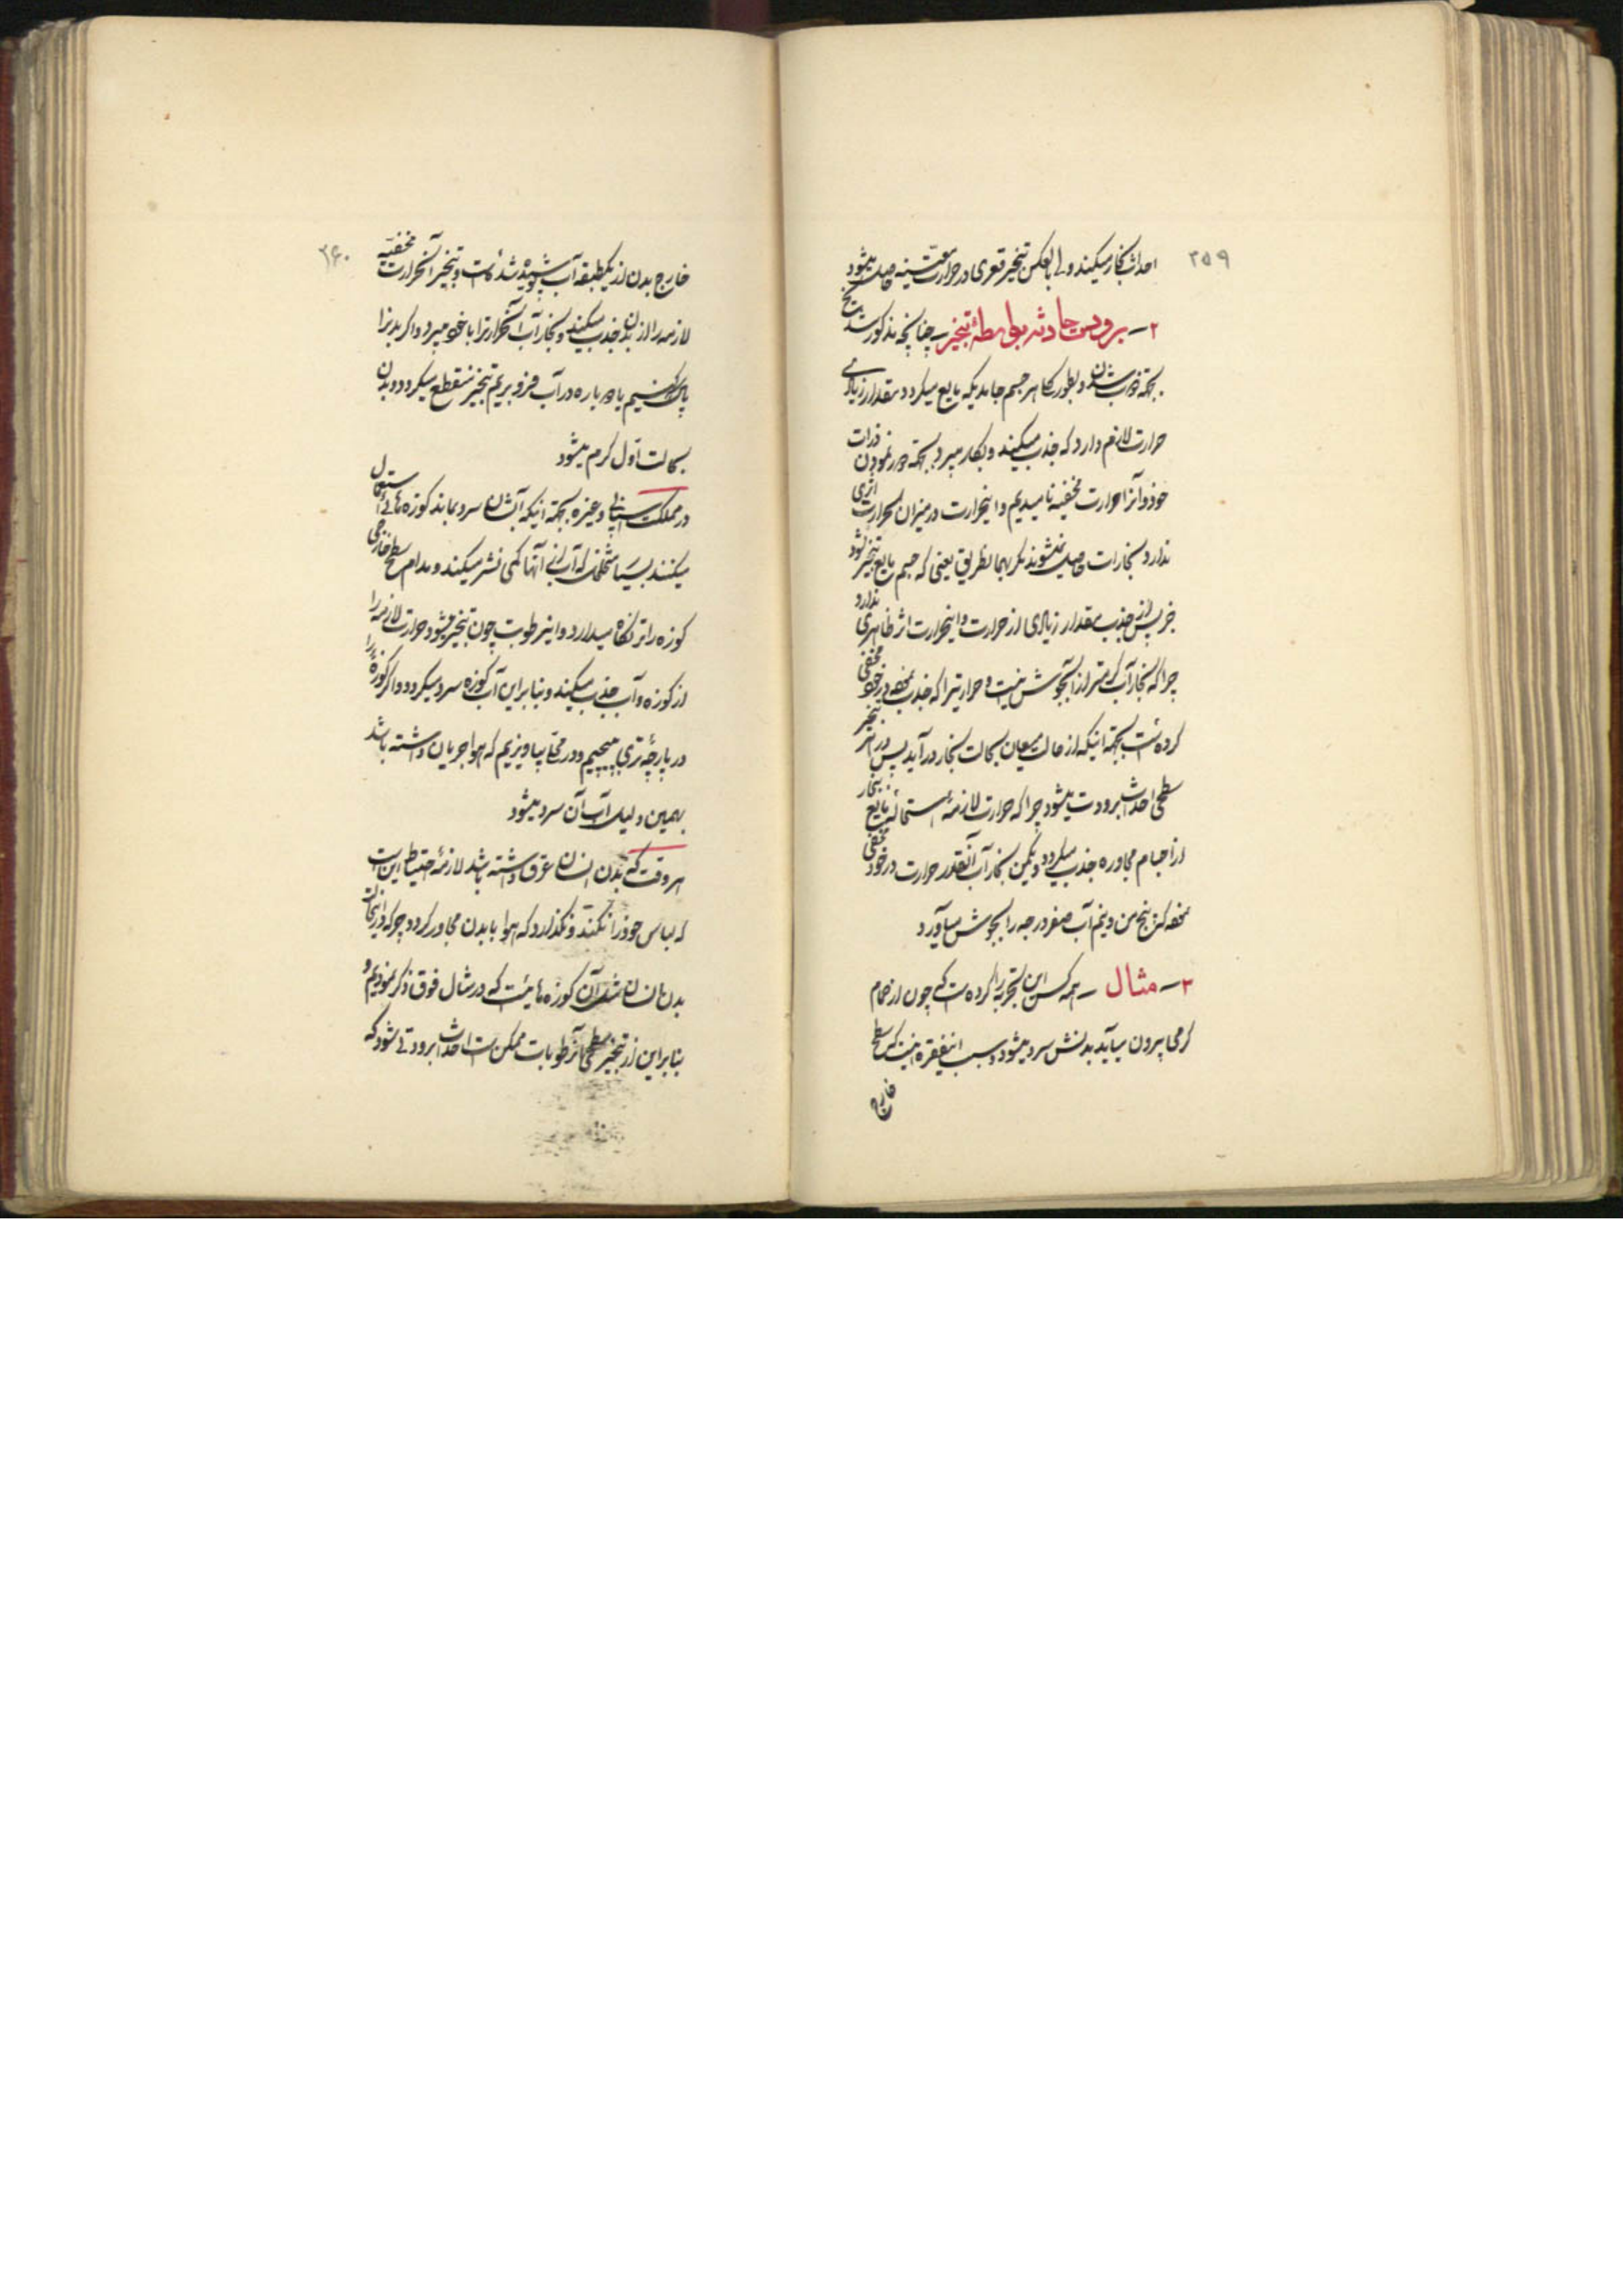 ۲۵۹
احداث بخار میکند ولی بالعکس تبخیر قعری در حرارت معینه حاصل میشود
۲ـ برودت حادثه بواسطهٔ تبخیر ـ چنانچه مذکور شد یخ
بجهته ذوب شدن و بطور کلی هر جسم جامدیکه مایع میگردد مقدار زیادی
حرارت لازم دارد که جذب میکند و بکار میبرد بجهته دور نمودن ذرات
خود و آنرا حرارت مخفیه نامیدیم و اینحرارت در میزان الحراره اثری
ندارد بخارات حاصل نمیشوند مگر بهمانطریق یعنی که جسم مایع تبخیر نشود
جز پس از جذب مقدار زیادی از حرارت و اینحرارت اثر ظاهری ندارد
چرا که بخار آب گرمتر از آبجوش نیست و حرارتیرا که جذب نموده در خود مخفی
کرده است بجهته اینکه از حالت میعان بحالت بخار درآید پس در اثر تبخیر
سطحی احداث برودت میشود چرا که حرارت لازمهٔ استحالهٔ مایع ببخار
از اجسام مجاوره جذب میگردد و یکمن بخار آب آنقدر حرارت در خود مخفی
که پنج من و نیم آب صفر درجه را بجوش میآورد
۳ـ مثال ـ همه کس این تجربه را کرده است که چون از حمام
گرمی بیرون میآید بدنش سرد میشود و سبب اینفقره اینست که سطح
خارج
۲۶۰
خارج بدن از یکطبقه آب پوشیده شده است و تبخیر آن حرارت مخفیه
لازمه را از بدن جذب میکند و بخار آب آنحرارترا با خود میبرد و اگر بدنرا
پاک کنیم یا دوباره در آب فرو بریم تبخیر منقطع میگردد و بدن
بحالت اول گرم میشود
در مملکت اسپانی و غیره بجهته اینکه آبشان سرد بماند کوزه هائی استعمال
میکنند بسیار متخلخل که آب از آنها کمی نشر میکند و مدام سطح خارجی
کوزه را تر نگاه میدارد و اینرطوبت چون تبخیر میشود حرارت لازمه را
از کوزه و آب جذب میکند و بنابراین آب کوزه سرد میگردد و اگر کوزه را
در پارچهٔ تری بپیچیم و در محلی بیاویزیم که هوا جریان داشته باشد
بهمین دلیل آب آن سرد میشود
هر وقت که بدن انسان عرق داشته باشد لازمهٔ احتیاط این است
که لباس خود را نکند و نگذارد که هوا با بدن مجاور گردد چرا که در اینحالت
بدن انسان مثل آن کوزه هائیست که در مثال فوق ذکر نمودیم و
بنابراین از تبخیر سطحی آنرطوبات ممکن است احداث برودتی شود که